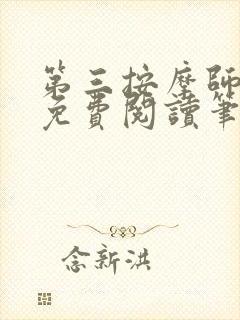 第三按摩師
免費閱讀筆
念新洪